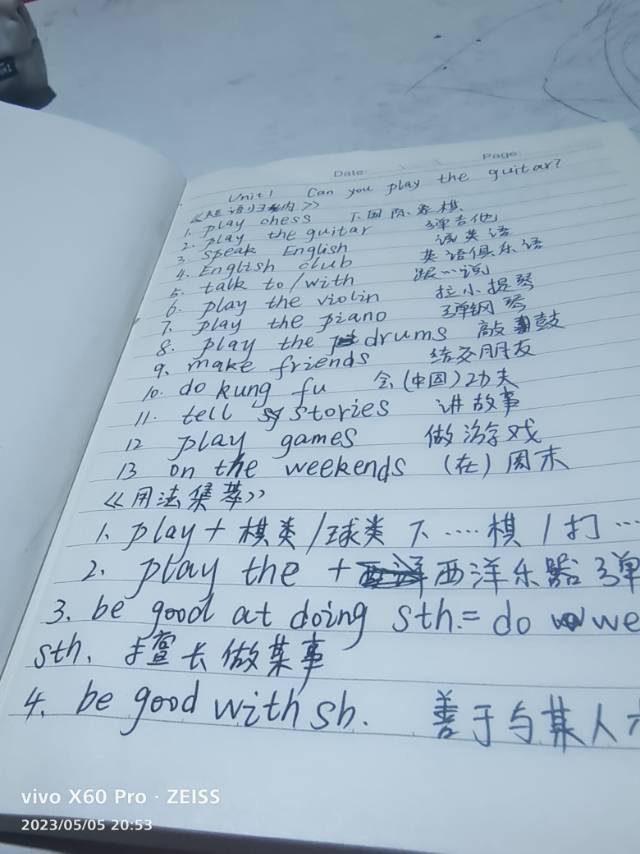 Date: Page:
Unit 1 Can you play the guitar?
《短语归纳》
1. play chess 下国际象棋
2. play the guitar 弹吉他
3. speak English 说英语
4. English club 英语俱乐语
5. talk to/with 跟…说
6. play the violin 拉小提琴
7. play the piano 弹钢琴
8. play the drums 敲鼓
9、make friends 结交朋友
10. do kung fu 会(中国)功夫
11. tell stories 讲故事
12 play games 做游戏
13 on the weekends (在)周末
《用法集萃》
1. play + 棋类/球类 下……棋/打…
2. play the + 西洋乐器 弹
3. be good at doing sth.= do we
sth. 擅长做某事
4. be good with sb. 善于与某人
vivo X60 Pro · ZEISS
2023/05/05 20:53